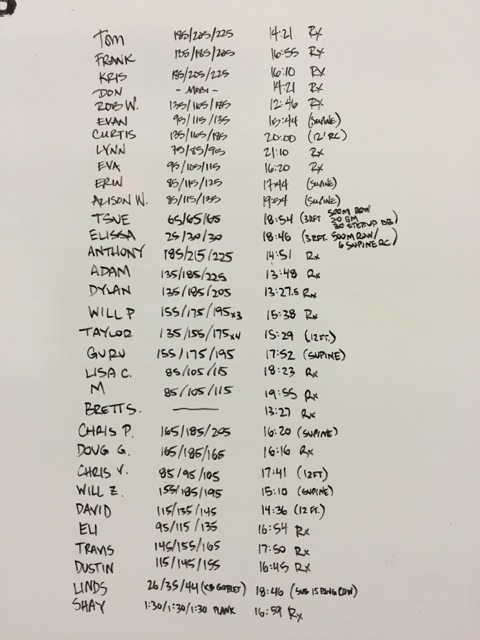 TOM 185/205/225 14:21 Rx
FRANK 135/185/205 16:55 Rx
KRIS 185/205/225 16:10 Rx
DON - MOBI - 14:21 Rx
ROB W. 135/165/185 12:46 Rx
EVAN 95/115/135 15:44 (SUPINE)
CURTIS 135/165/185 20:00 (12' RC)
LYNN 75/85/95 21:10 Rx
EVA 95/105/115 16:20 Rx
ERIN 85/115/125 17:44 (SUPINE)
ALISON W. 85/115/135 19:54 (SUPINE)
TSUE 65/65/65 18:54 (3RFT 500M ROW 30 GM 30 STEPUP DB)
ELISSA 25/30/30 18:46 (3RFT. 500M ROW/ 6 SUPINE RC)
ANTHONY 185/215/225 14:51 Rx
ADAM 135/185/225 13:48 Rx
DYLAN 135/185/205 13:27.5 Rx
WILL P 155/175/195x3 15:38 Rx
TAYLOR 135/155/175x4 15:29 (12FT.)
GURU 155/175/195 17:52 (SUPINE)
LISA C. 85/105/115 18:23 Rx
M 85/105/115 19:55 Rx
BRETT S. 13:27 Rx
CHRIS P. 165/185/205 16:20 (SUPINE)
DOUG G. 165/185/165 16:16 Rx
CHRIS V. 85/95/105 17:41 (12FT)
WILL Z. 155/185/195 15:10 (SUPINE)
DAVID 115/135/145 14:36 (12 FT.)
ELI 95/115/135 16:54 Rx
TRAVIS 145/155/165 17:50 Rx
DUSTIN 115/145/155 16:45 Rx
LINDS 26/35/44 (KB GOBLET) 18:46 (SUB 15 RING ROW)
SHAY 1:30/1:30/1:30 PLANK 16:59 Rx